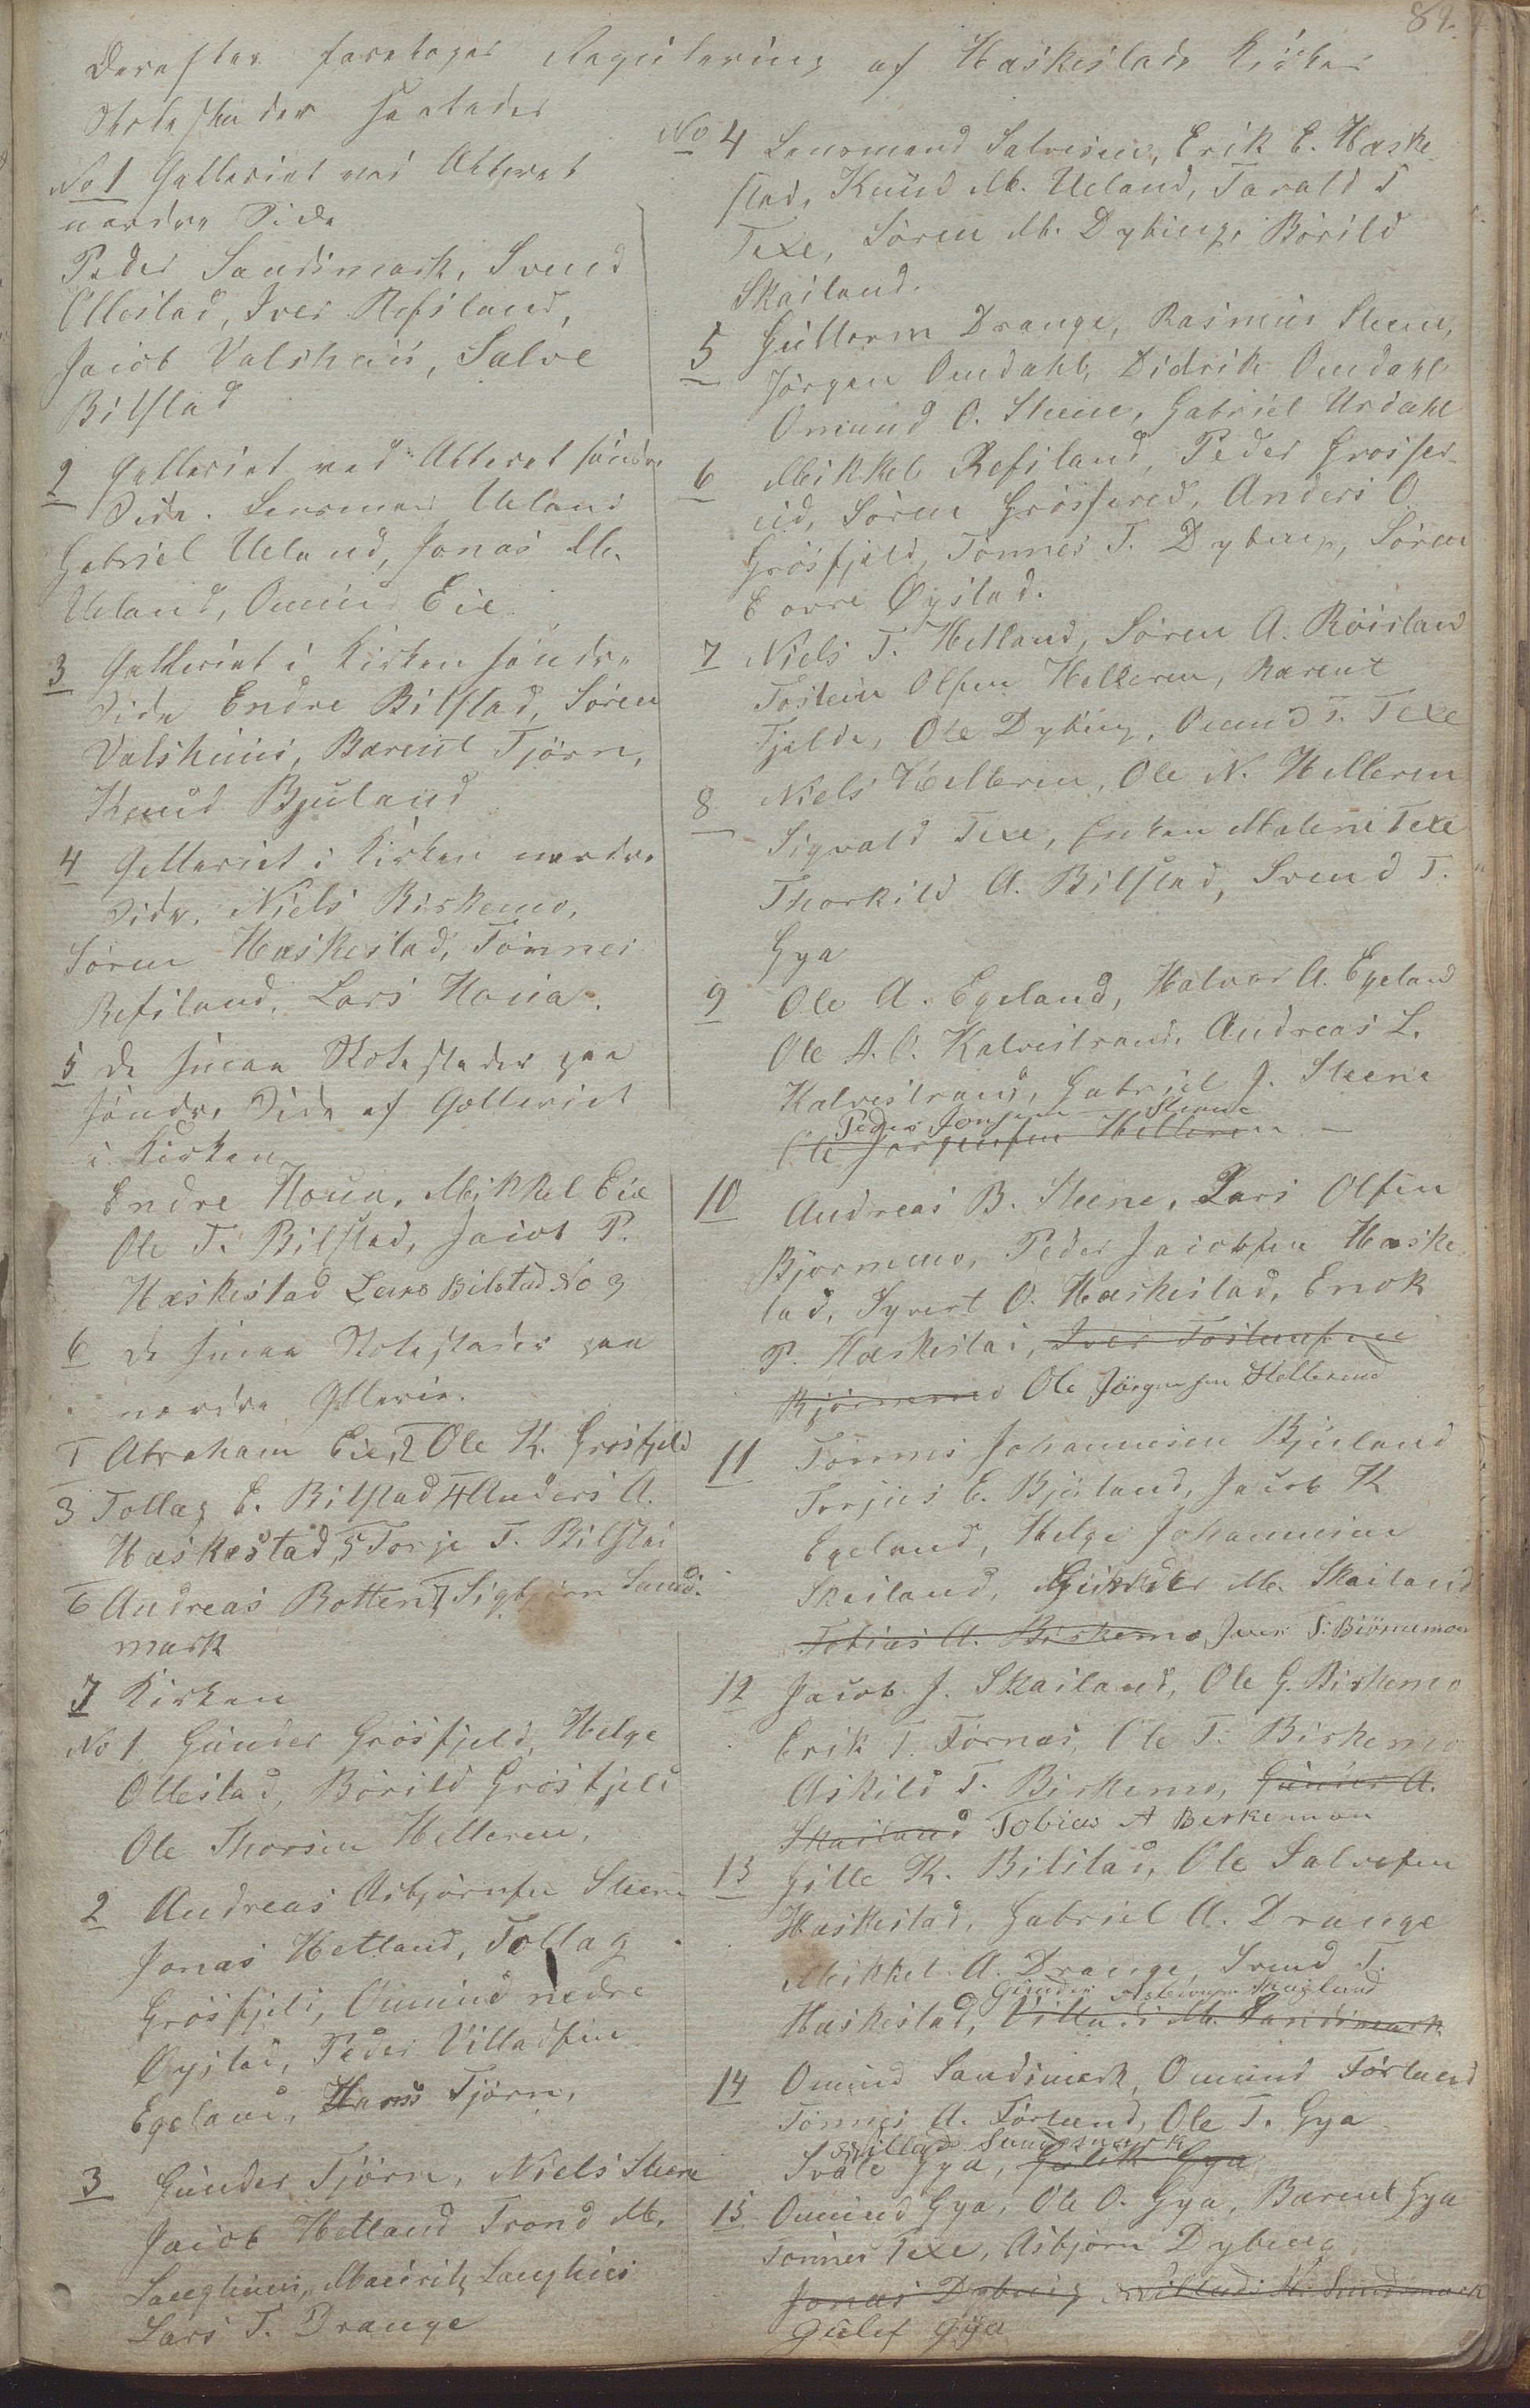 84.
Derefter foretoges Regulering af Haskestads Kirkes
Stolestader saaledes
No 1 Galleriet ved Alteret
nordre Side
Peder Sandsmark, Svend
Ollestad, Iver Refsland,
Jacob Valshuus, Salve
Bilstad
2 Galleriet ved Alteret søndre
Side. Lensmand Ueland
Gabriel Ueland, Jonas M.
Ueland, Omund Eie
3 Galleriet i Kirken søndre
Side Endre Bilstad, Sören
Valshuus, Barent Tjörn,
Knud Bjuland
4 Galleriet i Kirken nordre
Side. Niels Birkemo,
Sören Haskestad, Tönnes
Refsland, Lars Houa.
5 De smaa Stolestader paa
söndre Side af Galleriet
i Kirken
Endre Houa, Mikkel Eie
Ole T. Bilstad, Jacob P.
Haskestad Lars Bilstad No 3
6 de smaa Stolestader paa
nordre Gallerie.
1 Abraham Eie, 2 Ole K. Grösfjeld
3 Tollag E. Bilstad 4 Anders A.
Haskestad, 5 Torje T. Bilstad
6 Andreas Botten 7 Sigbjörn Sands-
mark
7 Kirken
No 1 Gunder Grösfjeld, Helge
Ollestad, Börild Grösfjeld
Ole Thorsen Helleren,
2 Andreas Asbjörnsen Steene
Jonas Hetland, Tollag
Grösfjeld, Omund nedre
Öystad, Peder Villadsen
Egeland, Hans Tjörn,
3 Gunder Tjörn, Niels Steene
Jacob Hetland Trond M.
Laughuus, Mauritz Laughuus
Lars T. Drange
No 4 Lensmand Salvesen, Erik E. Haske-
stad, Knud M. Ueland, Tarald T
Texe, Sören M. Dybing, Börild
Skailand.
5 Guttorm Drange, Rasmus Steene,
Jörgen Omdahl, Didrik Omdahl
Omund O. Steene, Gabriel Urdahl
6 Mikkel Refsland, Peder Grösfje-
ld, Sören Grösfjeld, Anders O
Grösfjeld, Tönnes T. Dybing, Sören
E övre Øystad.
7 Niels T. Hetland, Sören A. Röisland
Tostein Olsen Helleren, Barent
Fjelde, Ole Dybing, Omund T. Texe
8 Niels Helleren, Ole N. Helleren
Sigvald Texe, Enken Malene Texe
Thorkild A. Bilstad, Svend T.
Gya
9 Ole A. Egeland, Halvor A. Egeland
Ole A. O. Kalvestrand, Andreas L.
Kalvestrand, Gabriel J. Steene
Peder Jonsen Steene
Ole Jörgensen Helleren
10 Andreas B. Steene, Lars Olsen
Björnemo, Peder Jacobsen Haske-
tad, Syvert O. Haskestad, Enok
P. Haskestad, Iver Tostensen
Björnemo Ole Jörgensen Hellerend
11 Tönnes Johannesen Bjuland
Torjus E. Bjuland, Jacob K
Egeland, Helge Johannesen
Skailand, Gunder M. Skailand
Tobias A. Birkemo, Iver T. Biörnemoen
12 Jacob J. Skailand, Ole G. Birkemo
Erik T. Förnæs, Ole T. Birkemo
Askild T. Birkemo, Gunder A.
Skailand Tobias A Berkemoen
13 Gille K. Bilstad, Ole Salvesen
Haskestad, Gabriel A. Drange
Mikkel A. Drange, Svend T.
Gunder Skagland
Haskestad, Villads M. Sandsmark
14 Omund Sandsmark, Omund Förlund
Tönnes A. Förlund, Ole T. Gya
Villads Sandsmark
Svale Gya, Gulek Gya
15 Omund Gya, Ole O. Gya, Barent Gya
Tönnes Texe, Asbjörn Dybing
Jonas Dybing Villads M. Sandsmark
Gulef Gya